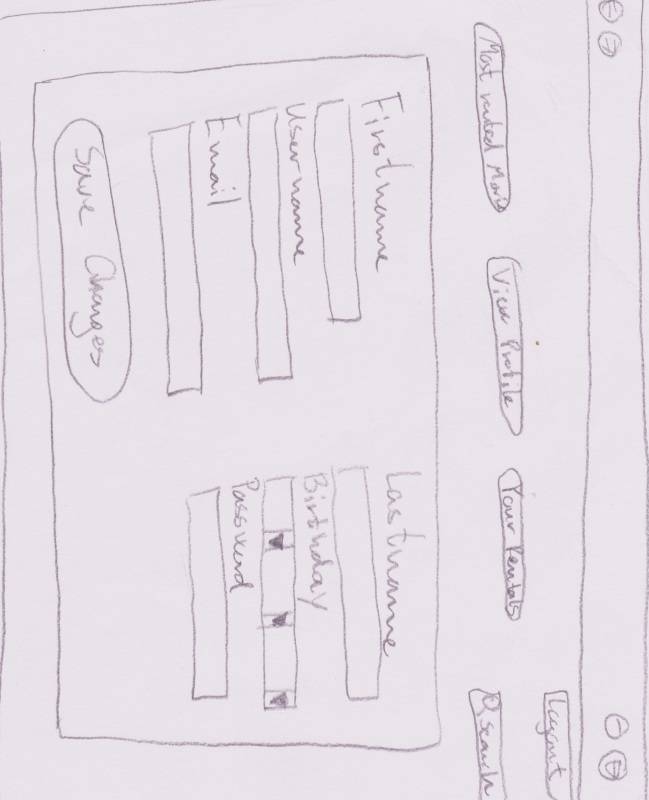 Layout
Most rented Movie
View Profile
Your Rentals
Search
Firstname
Lastname
Username
Birthday
Email
Password
Save Changes